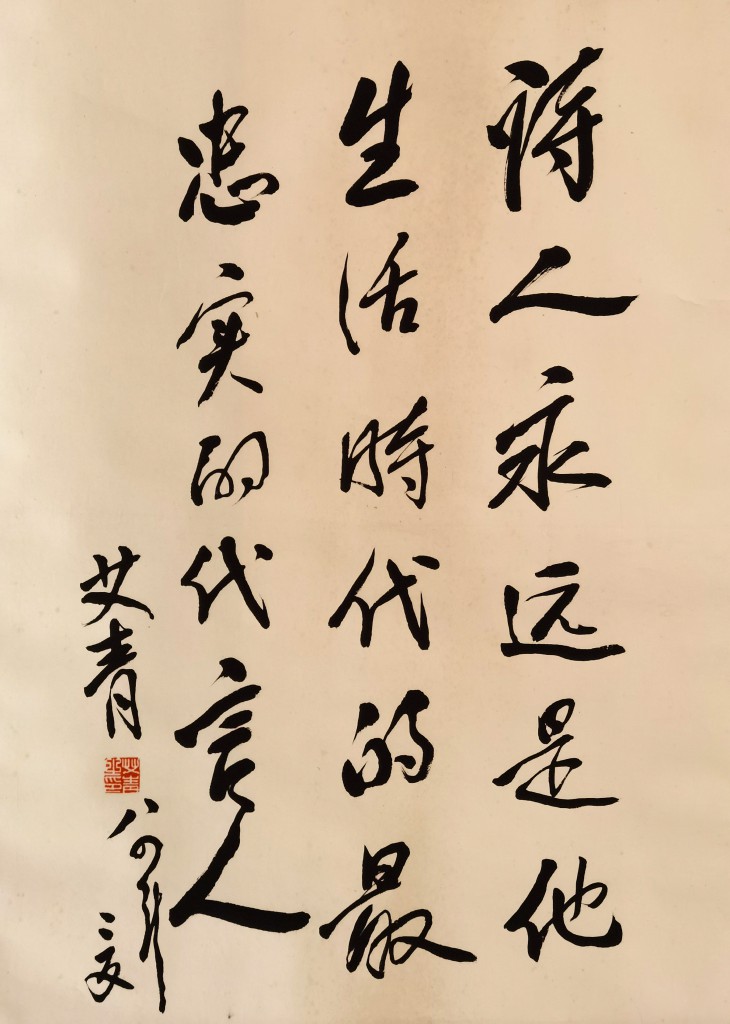 诗人永远是他
生活時代的最
忠实的代言人
艾青
艾青